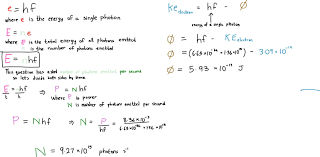 e = hf
where e is the energy of a single photon
E = ne
where E is the total energy of all photons emitted
n is the number of photons emitted
E = nhf
This question has asked number of photons emitted per second
so lets divide both sides by time
E/t = n/t hf ⇒ P = Nhf
where P is power
N is number of photons emitted per second
P = Nhf ⇒ N = P/hf =
N = 9.27 × 10 photons s
KE electron = hf - Φ
energy of a single photon
Φ = hf - KE electron
Φ = 5.93 × 10 J